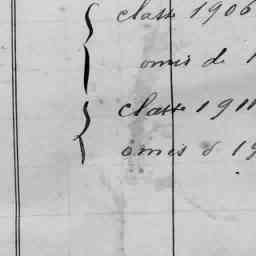 classe 1906
omis de 1
classe 1911
omis d 19